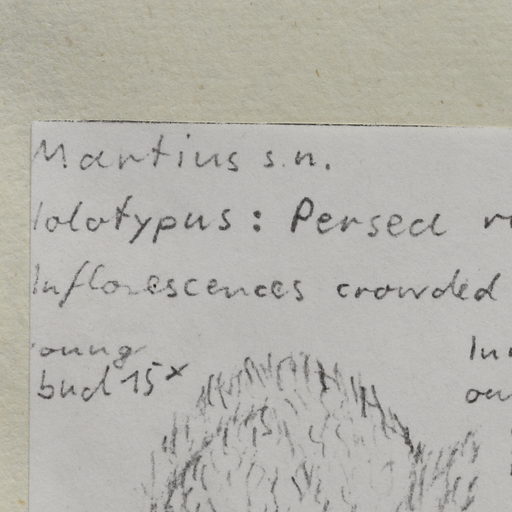 Martius s.n.
Holotypus: Persea
Inflorescences crowded
young
bud 15x